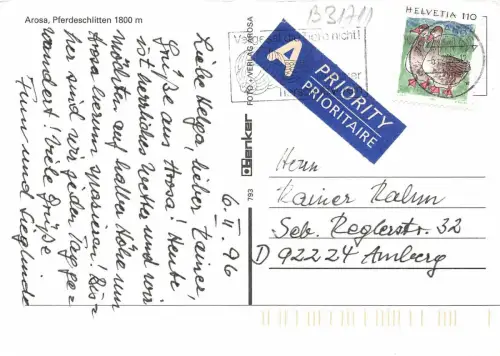 Arosa, Pferdeschlitten 1800 m
6. II. 96
Liebe Helga, lieber Rainer,
Grüße aus Arosa! Heute
ist herrliches Wetter und wir
möchten auf halber Höhe um
Arosa herum spazieren! Bis-
her sind wir jeden Tag ge-
wandert! Viele Grüße
und Sieglinde
793
Benker
FOTO + VERLAG AROSA
B31711
nicht!
A
PRIORITY
PRIORITAIRE
HELVETIA 110
Herrn
Rainer Rahm
Seb. Reglerstr. 32
D 92224 Amberg